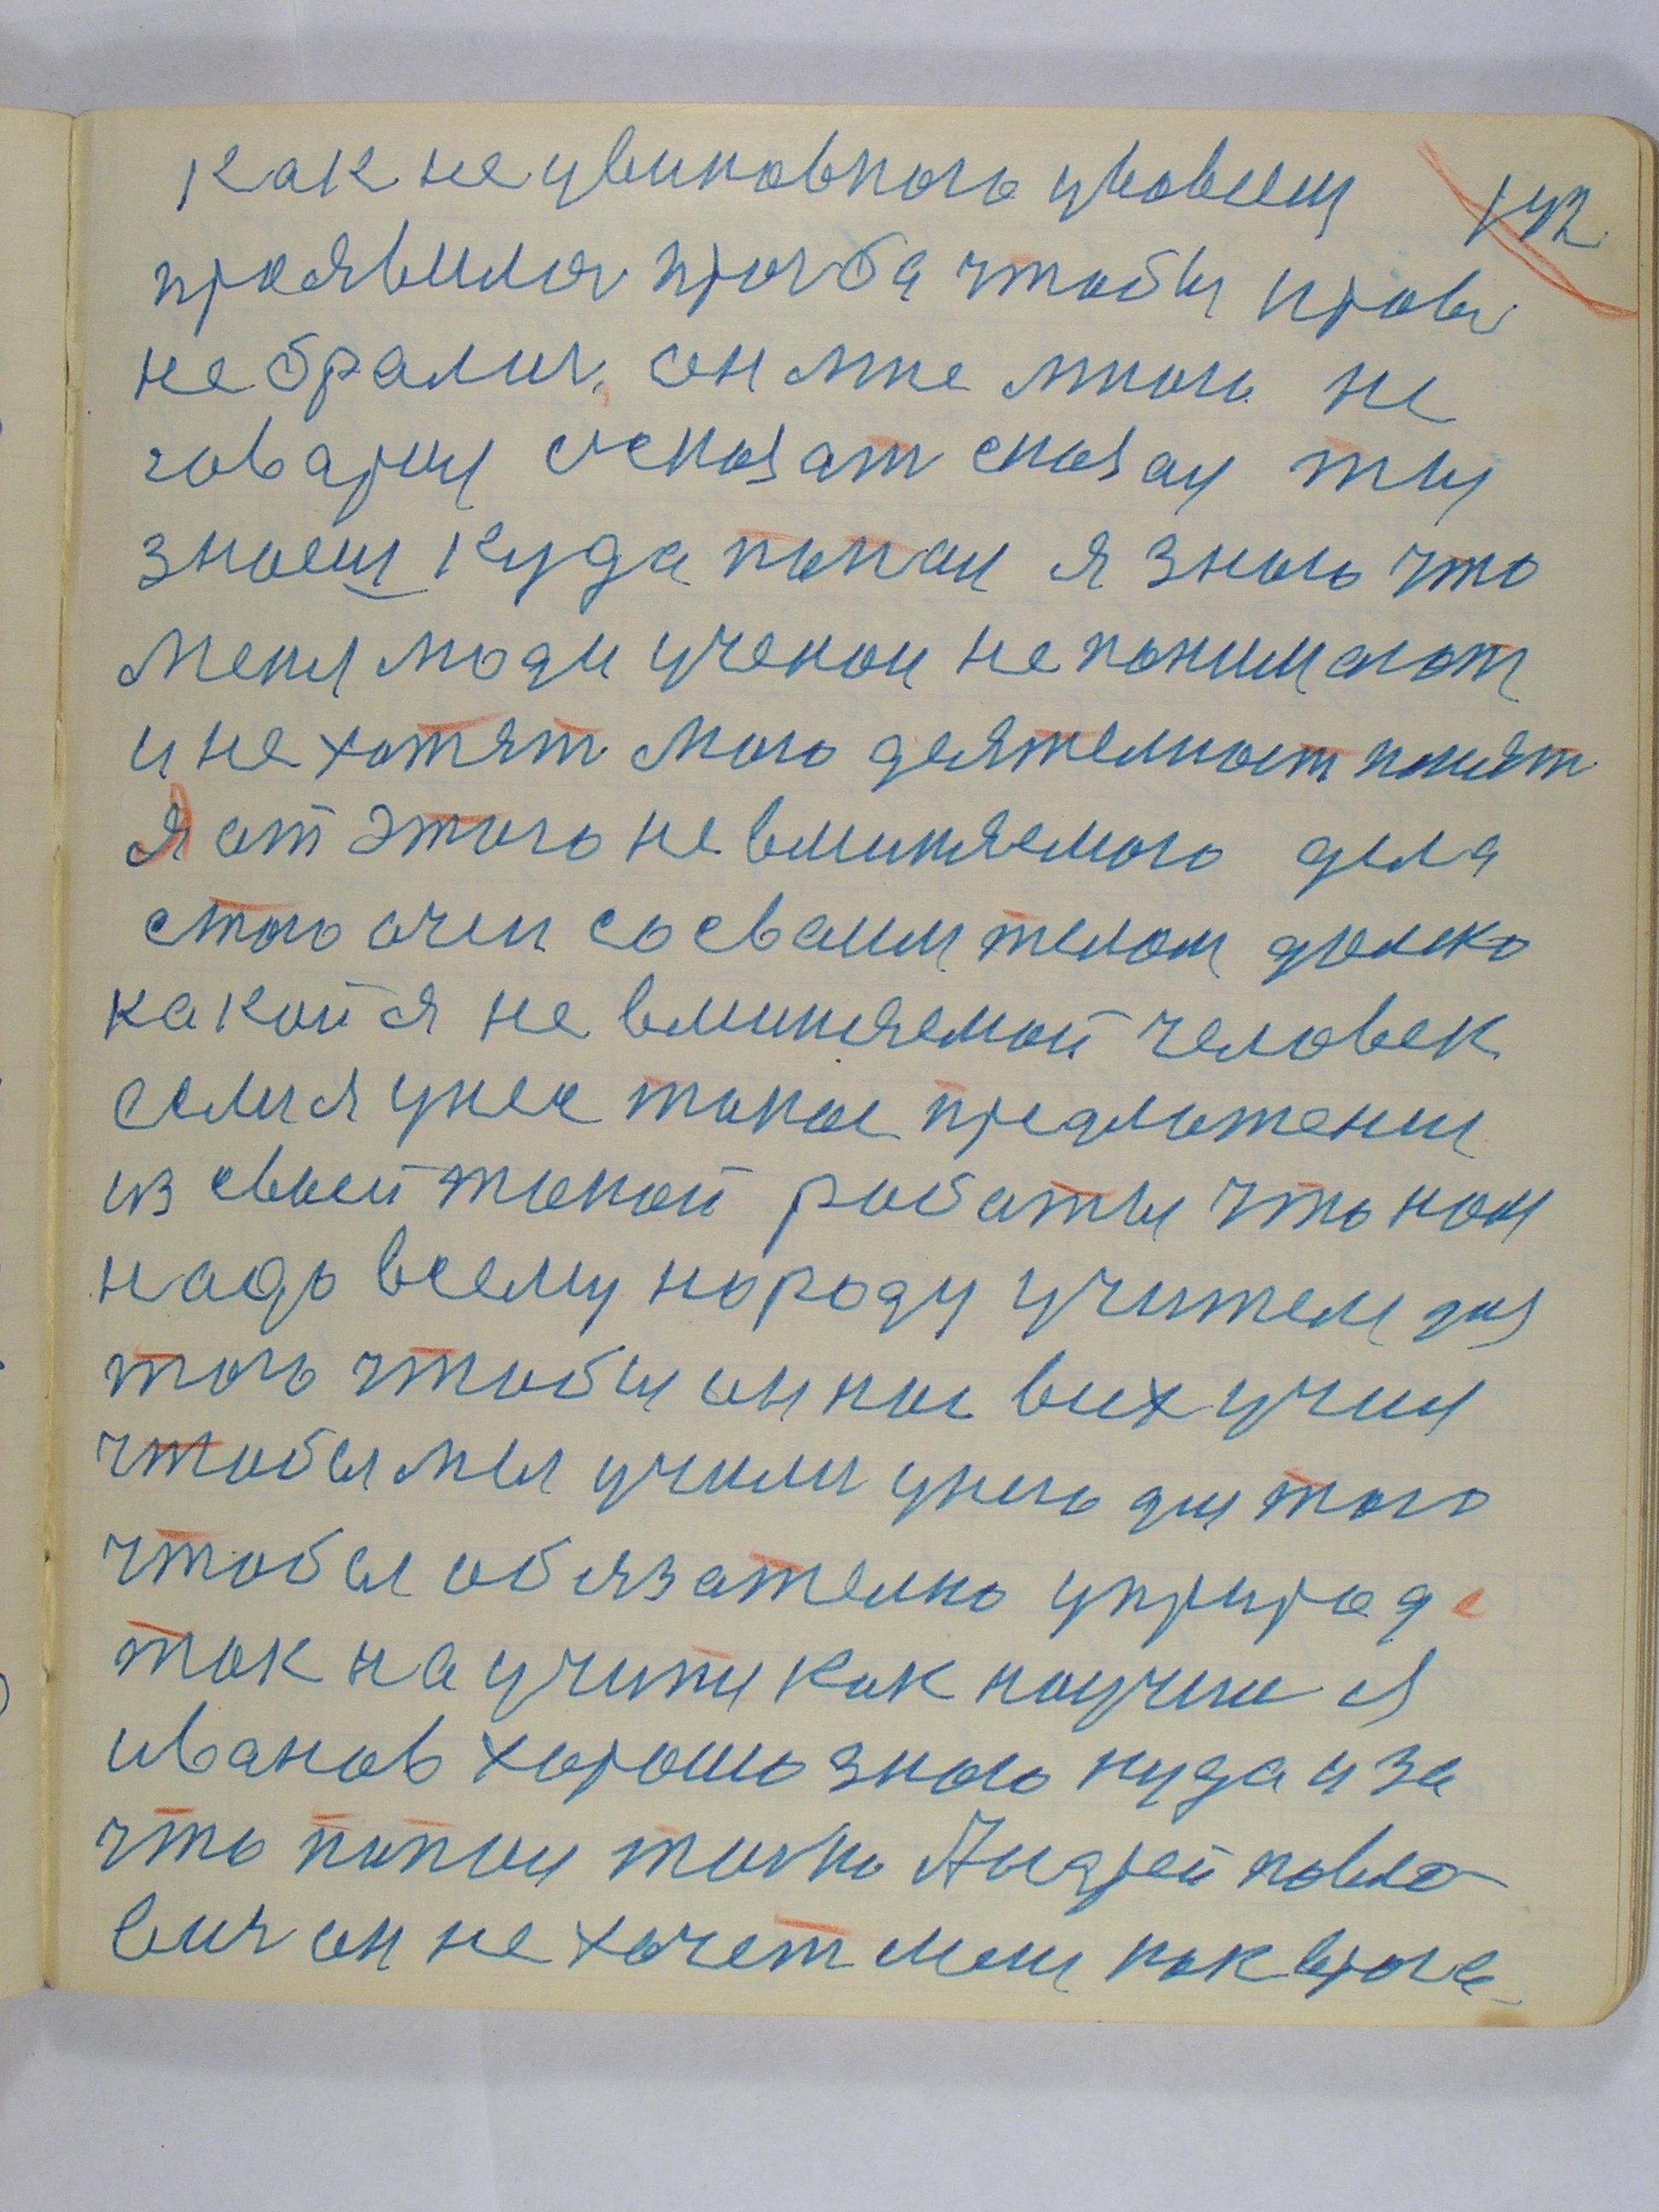 как не увиковного уловеем 142
проявилися прозба чтобы кровь
не брали. он мне много не
говарил осказат сказал ты
знаеш куда попал я знаю что
меня люди ученои не понимают
и не хотят мою деятелност понят
я от этого не влиняемого дела
стою очен со сваим телом далеко
какой я не влиняемой человек
если я унес такое предложении
из своей такой работы что нам
надо всему народу учител для
того чтобы он нас всих учил
чтобы мы учили унего для того
чтобы обязателно уприроде
так научити как научился
иванов хорошо знаю куда и за
что попал толко Андрей павло-
вич он не хочет меня как врага